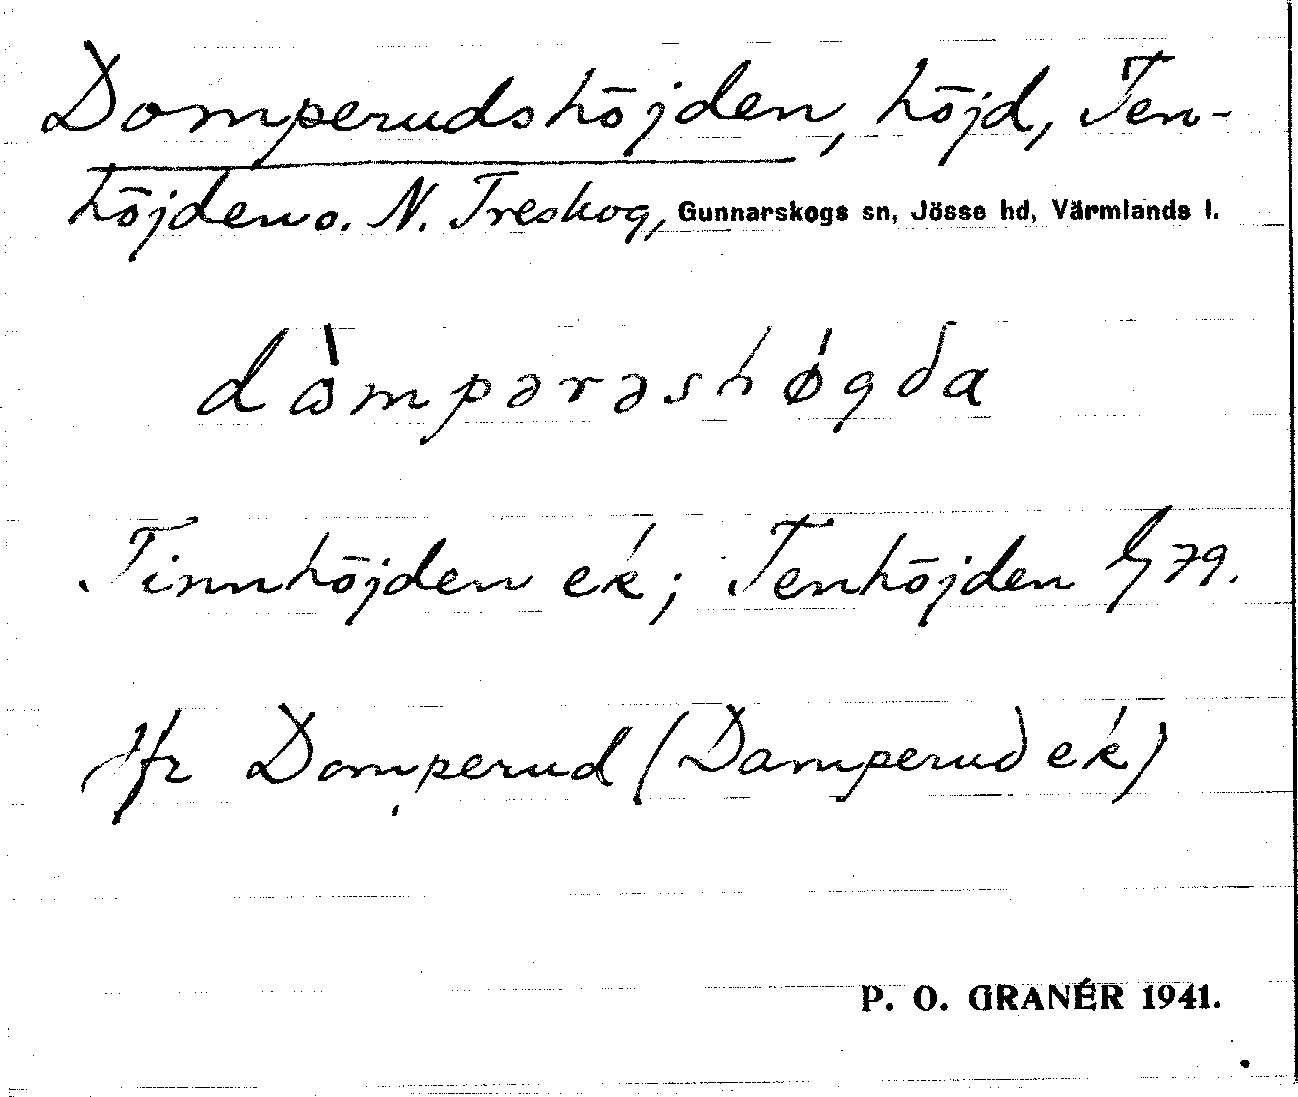 Domperudshöjden, höjd, Ten-
höjden o. N. Treskog, Gunnarskogs sn, Jösse hd, Värmlands l.
dòmpərəshøgda
Tinnhöjden ek; Tenhöjden G79.
Jfr Domperud (Damperud ek)
P. O. GRANÉR 1941.